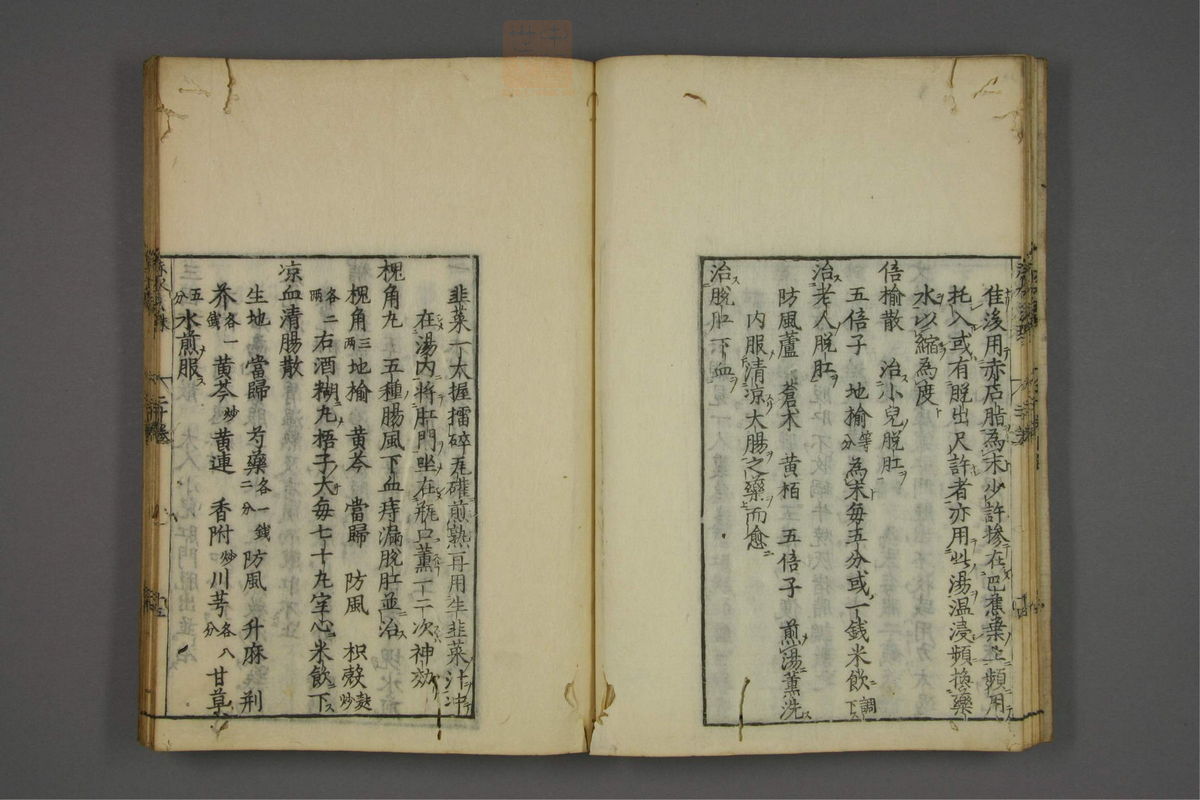 佳後用赤石脂為末少許掺在巴蕉葉上頻用
托入或有脱出尺許者亦用此湯温浸頻換藥
水以縮為度
倍榆散　治小兒脱肛
五倍子　地榆等分為末毎五分或一錢米飲調下
治老人脱肛
防風蘆　蒼木　黄栢　五倍子　煎湯薫洗
内服清凉大腸之藥而愈
治脱肛下血
韭菜一大握擂碎瓦礶煎熟再用生韭菜汁冲
在湯内將肛門坐在瓶口薫一二次神効
槐角丸　五種腸風下血痔漏脱肛並治
槐角三両地榆　黄芩　當歸　防風　枳殻麩炒
各二両右酒糊丸梧子大毎七十丸空心米飲下
凉血清腸散
生地　當歸　芍藥各一錢二分防風　升麻　荆
芥各一錢黄芩炒黄連　香附炒川芎各八分甘草
五分水煎服